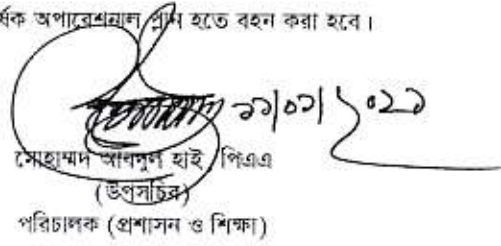 র্ষিক অপারেশনাল প্লান হতে বহন করা হবে।
১১/০১/২০২১
মোহাম্মদ আবদুল হাই, পিএএ
(উপসচিব)
পরিচালক (প্রশাসন ও শিক্ষা)